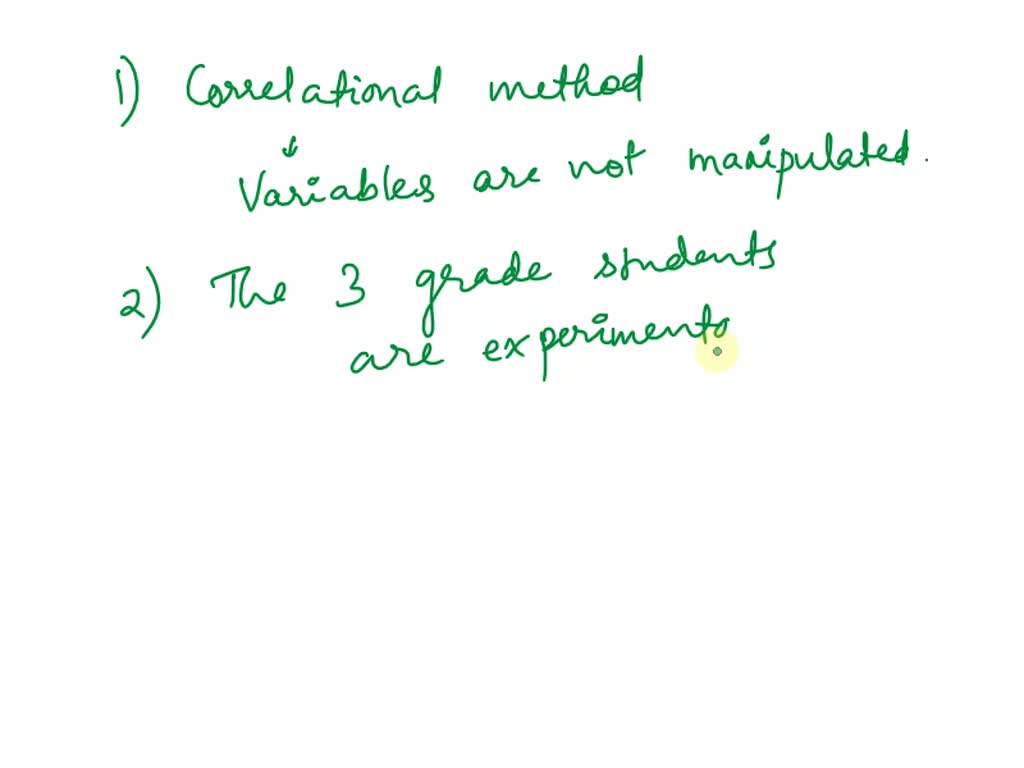 1) Correlational method
↓
Variables are not manipulated.
2) The 3 grade students
are experimento